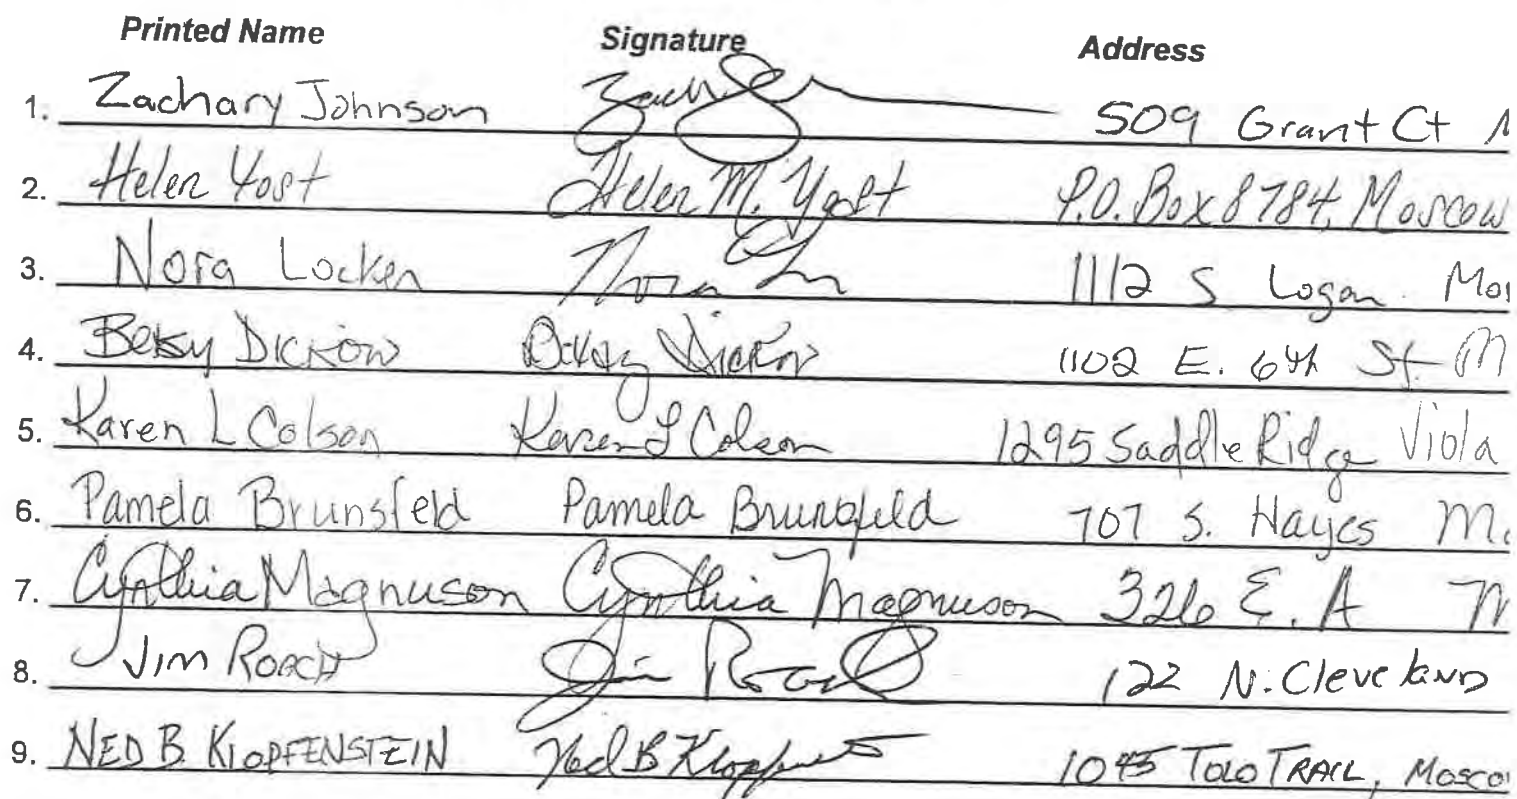 Printed Name Signature Address
1. Zachary Johnson Zach 509 Grant Ct M
2. Helen Yost Helen M. Yost P.O. Box 8784, Moscow
3. Nora Locken Nora 1112 S Logan Mos
4. Betsy Dickow Betsy Dickow 1102 E. 6th St M
5. Karen L Colson Karen L Colson 1295 Saddle Ridge Viola
6. Pamela Brunsfeld Pamela Brunsfeld 707 S. Hayes Mo
7. Cynthia Magnuson Cynthia Magnuson 326 E. A M
8. Jim Roach Jim Roach 122 N. Cleveland
9. NED B. KLOPFENSTEIN Ned B 1045 TOLO TRAIL, Mosco